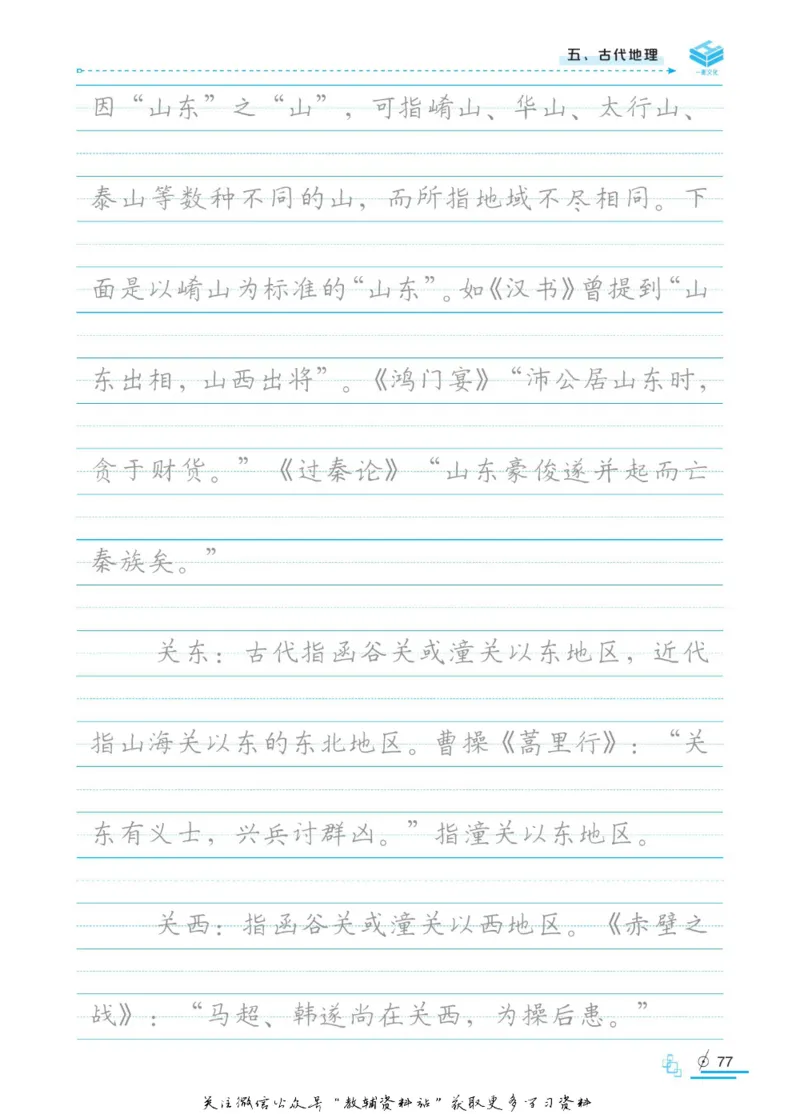 五、古代地理
一本文化
因“山东”之“山”，可指崤山、华山、太行山、
泰山等数种不同的山，而所指地域不尽相同。下
面是以崤山为标准的“山东”。如《汉书》曾提到“山
东出相，山西出将”。《鸿门宴》“沛公居山东时，
贪于财货。”《过秦论》“山东豪俊遂并起而亡
秦族矣。”
关东：古代指函谷关或潼关以东地区，近代
指山海关以东的东北地区。曹操《蒿里行》：“关
东有义士，兴兵讨群凶。”指潼关以东地区。
关西：指函谷关或潼关以西地区。《赤壁之
战》：“马超、韩遂尚在关西，为操后患。”
77
关注微信公众号“教辅资料站”获取更多学习资料